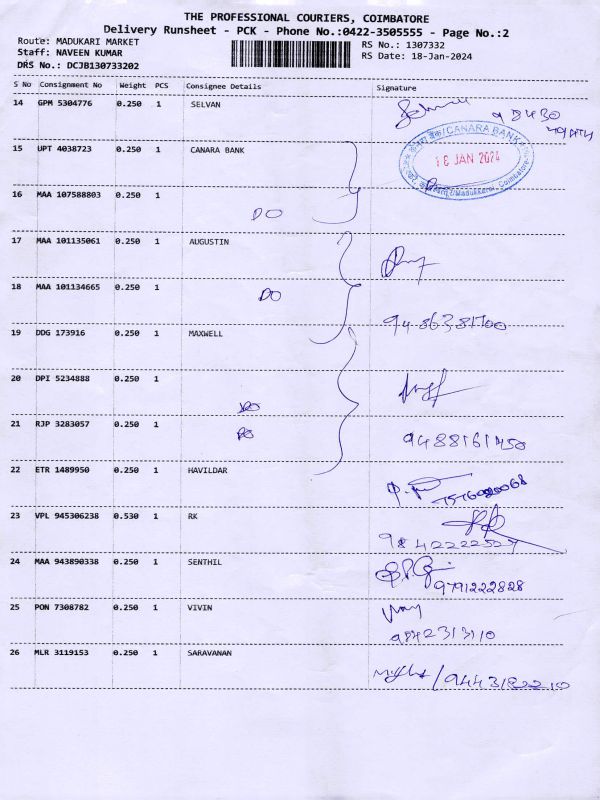 THE PROFESSIONAL COURIERS, COIMBATORE
Delivery Runsheet - PCK - Phone No.:0422-3505555 - Page No.:2
Route: MADUKARI MARKET
RS No.: 1307332
Staff: NAVEEN KUMAR
RS Date: 18-Jan-2024
DRS No.: DCJB130733202
S No Consignment No Weight PCS Consignee Details Signature
14 GPM 5304776 0.250 1 SELVAN
98430
15 UPT 4038723 0.250 1 CANARA BANK
CANARA BANK
JAN 2024
Madukkarai, Coimbatore
16 MAA 107588803 0.250 1
DO
17 MAA 101135061 0.250 1 AUGUSTIN
18 MAA 101134665 0.250 1
DO
9486381700
19 DDG 173916 0.250 1 MAXWELL
20 DPI 5234888 0.250 1
DO
21 RJP 3283057 0.250 1
DO
9488161450
22 ETR 1489950 0.250 1 HAVILDAR
23 VPL 945306238 0.530 1 RK
24 MAA 943890338 0.250 1 SENTHIL
9791222828
25 PON 7308782 0.250 1 VIVIN
9842313110
26 MLR 3119153 0.250 1 SARAVANAN